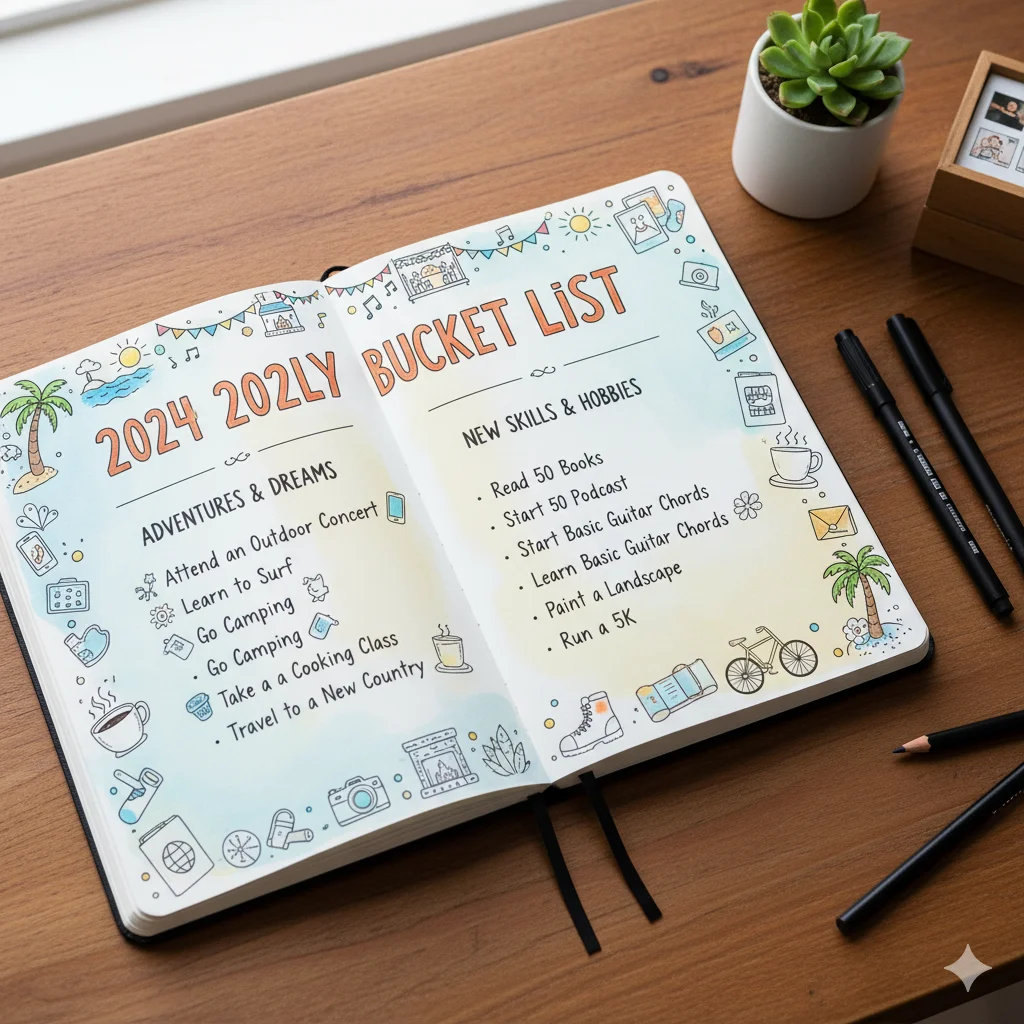 2024 202LY BUCKET LiST
ADVENTURES & DREAMS
Attend an Outdoor Concert
Learn to Surf
Go Camping
Go Camping
Take a a Cooking Class
Travel to a New Country
NEW SKILLS & HOBBIES
Read 50 Books
Start 50 Podcast
Start Basic Guitar Chords
Learn Basic Guitar Chords
Paint a Landscape
Run a 5K